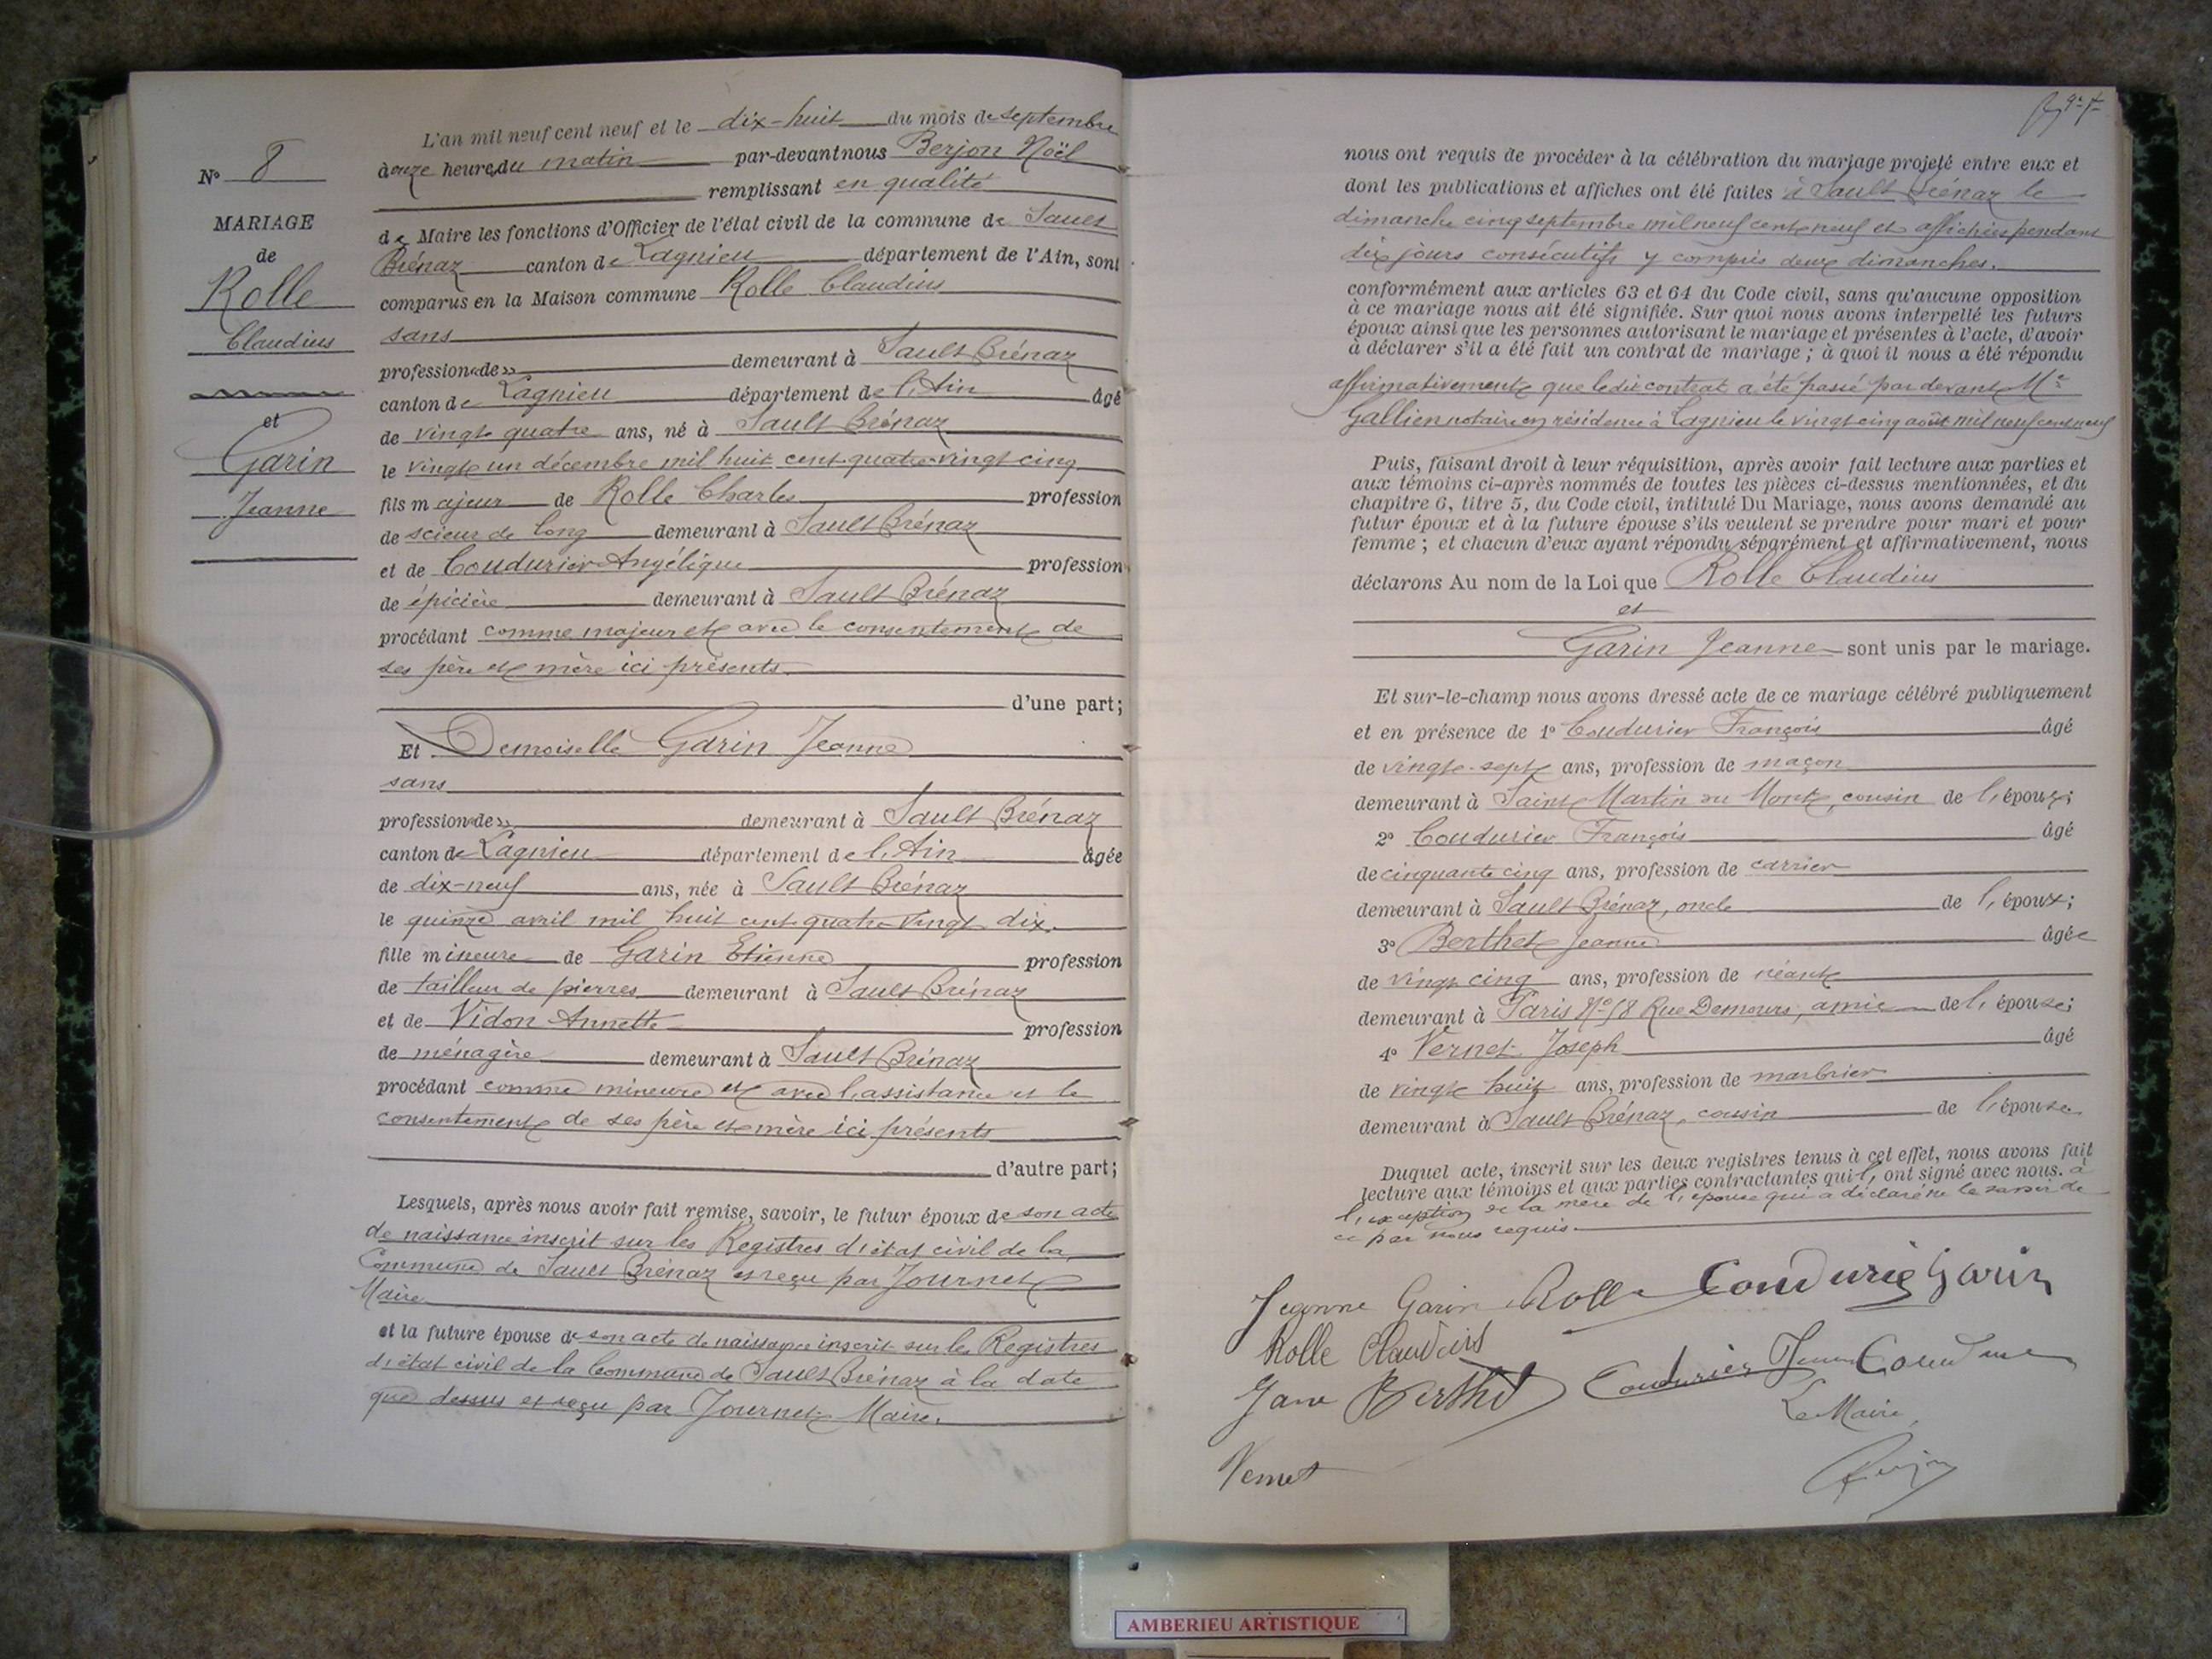 L'an mil neuf cent neuf et le dix-huit du mois de septembre
à onze heures du matin par-devant nous Berjon Noël
remplissant en qualité
de Maire les fonctions d'Officier de l'état civil de la commune de Sault
Brénaz canton de Lagnieu département de l'Ain, sont
comparus en la Maison commune Rolle Claudius
sans
profession «de» demeurant à Sault Brénaz
canton de Lagnieu département de l'Ain âgé
de vingt quatre ans, né à Sault Brénaz
le vingt un décembre mil huit cent quatre vingt cinq
fils majeur de Rolle Charles profession
de scieur de long demeurant à Sault Brénaz
et de Coudurier Angélique profession
de épicière demeurant à Sault Brénaz
procédant comme majeur et avec le consentement de
ses père et mère ici présents.
d'une part;
Et Demoiselle Garin Jeanne
sans
profession «de» demeurant à Sault Brénaz
canton de Lagnieu département de l'Ain âgée
de dix-neuf ans, née à Sault Brénaz
le quinze avril mil huit cent quatre vingt dix.
fille mineure de Garin Etienne profession
de tailleur de pierres demeurant à Sault Brénaz
et de Vidon Annette profession
de ménagère demeurant à Sault Brénaz
procédant comme mineure et avec l'assistance et le
consentement de ses père et mère ici présents
d'autre part;
Lesquels, après nous avoir fait remise, savoir, le futur époux de son acte
de naissance inscrit sur les Registres d'état civil de la
Commune de Sault Brénaz et reçu par Journet
Maire
et la future épouse de son acte de naissance inscrit sur les Registres
d'état civil de la Commune de Sault Brénaz à la date
que dessus et reçu par Journet Maire.
N° 8
MARIAGE
de
Rolle
Claudius
et
Garin
Jeanne
nous ont requis de procéder à la célébration du mariage projeté entre eux et
dont les publications et affiches ont été faites à Sault Brénaz le
dimanche cinq septembre mil neuf cent neuf et affichées pendant
dix jours consécutifs y compris deux dimanches.
conformément aux articles 63 et 64 du Code civil, sans qu'aucune opposition
à ce mariage nous ait été signifiée. Sur quoi nous avons interpellé les futurs
époux ainsi que les personnes autorisant le mariage et présentes à l'acte, d'avoir
à déclarer s'il a été fait un contrat de mariage; à quoi il nous a été répondu
affirmativement que ledit contrat a été passé par devant Me
Gallien notaire en résidence à Lagnieu le vingt cinq août mil neuf cent neuf
Puis, faisant droit à leur réquisition, après avoir fait lecture aux parties et
aux témoins ci-après nommés de toutes les pièces ci-dessus mentionnées, et du
chapitre 6, titre 5, du Code civil, intitulé Du Mariage, nous avons demandé au
futur époux et à la future épouse s'ils veulent se prendre pour mari et pour
femme; et chacun d'eux ayant répondu séparément et affirmativement, nous
déclarons Au nom de la Loi que Rolle Claudius
et
Garin Jeanne sont unis par le mariage.
Et sur-le-champ nous avons dressé acte de ce mariage célébré publiquement
et en présence de 1° Coudurier François âgé
de vingt-sept ans, profession de maçon
demeurant à Saint Martin du Mont, cousin de l'époux;
2° Coudurier François âgé
de cinquante cinq ans, profession de carrier
demeurant à Sault Brénaz, oncle de l'époux;
3° Berthet Jeanne âgée
de vingt cinq ans, profession de néant
demeurant à Paris N° 18 Rue Demours, amie de l'épouse;
4° Vernet Joseph âgé
de vingt huit ans, profession de marbrier
demeurant à Sault Brénaz, cousin de l'épouse
Duquel acte, inscrit sur les deux registres tenus à cet effet, nous avons fait
lecture aux témoins et aux parties contractantes qui l, ont signé avec nous. à
l'exception de la mère de l'épouse qui a déclaré ne le savoir de
ce par nous requis.
Jeanne Garin Rolle Coudurie Garin
Rolle Claudius
Jane Berthet Coudurier
Le Maire,
Vernet Berjon
AMBERIEU ARTISTIQUE